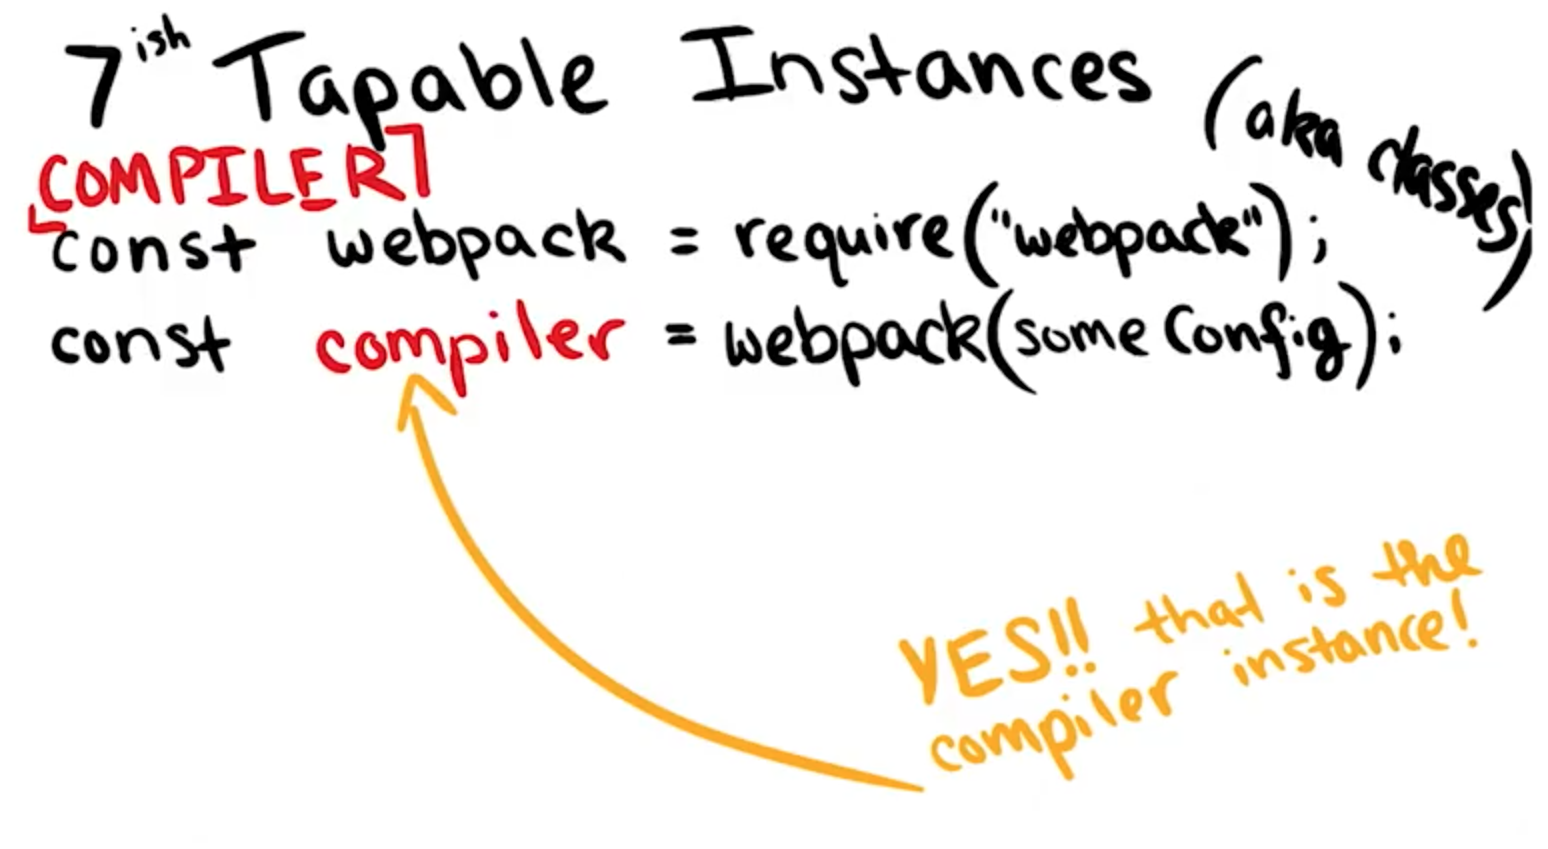 7ish Tapable Instances (aka classes)
COMPILER
const webpack = require("webpack");
const compiler = webpack(someConfig);
YES!! that is the
compiler instance!